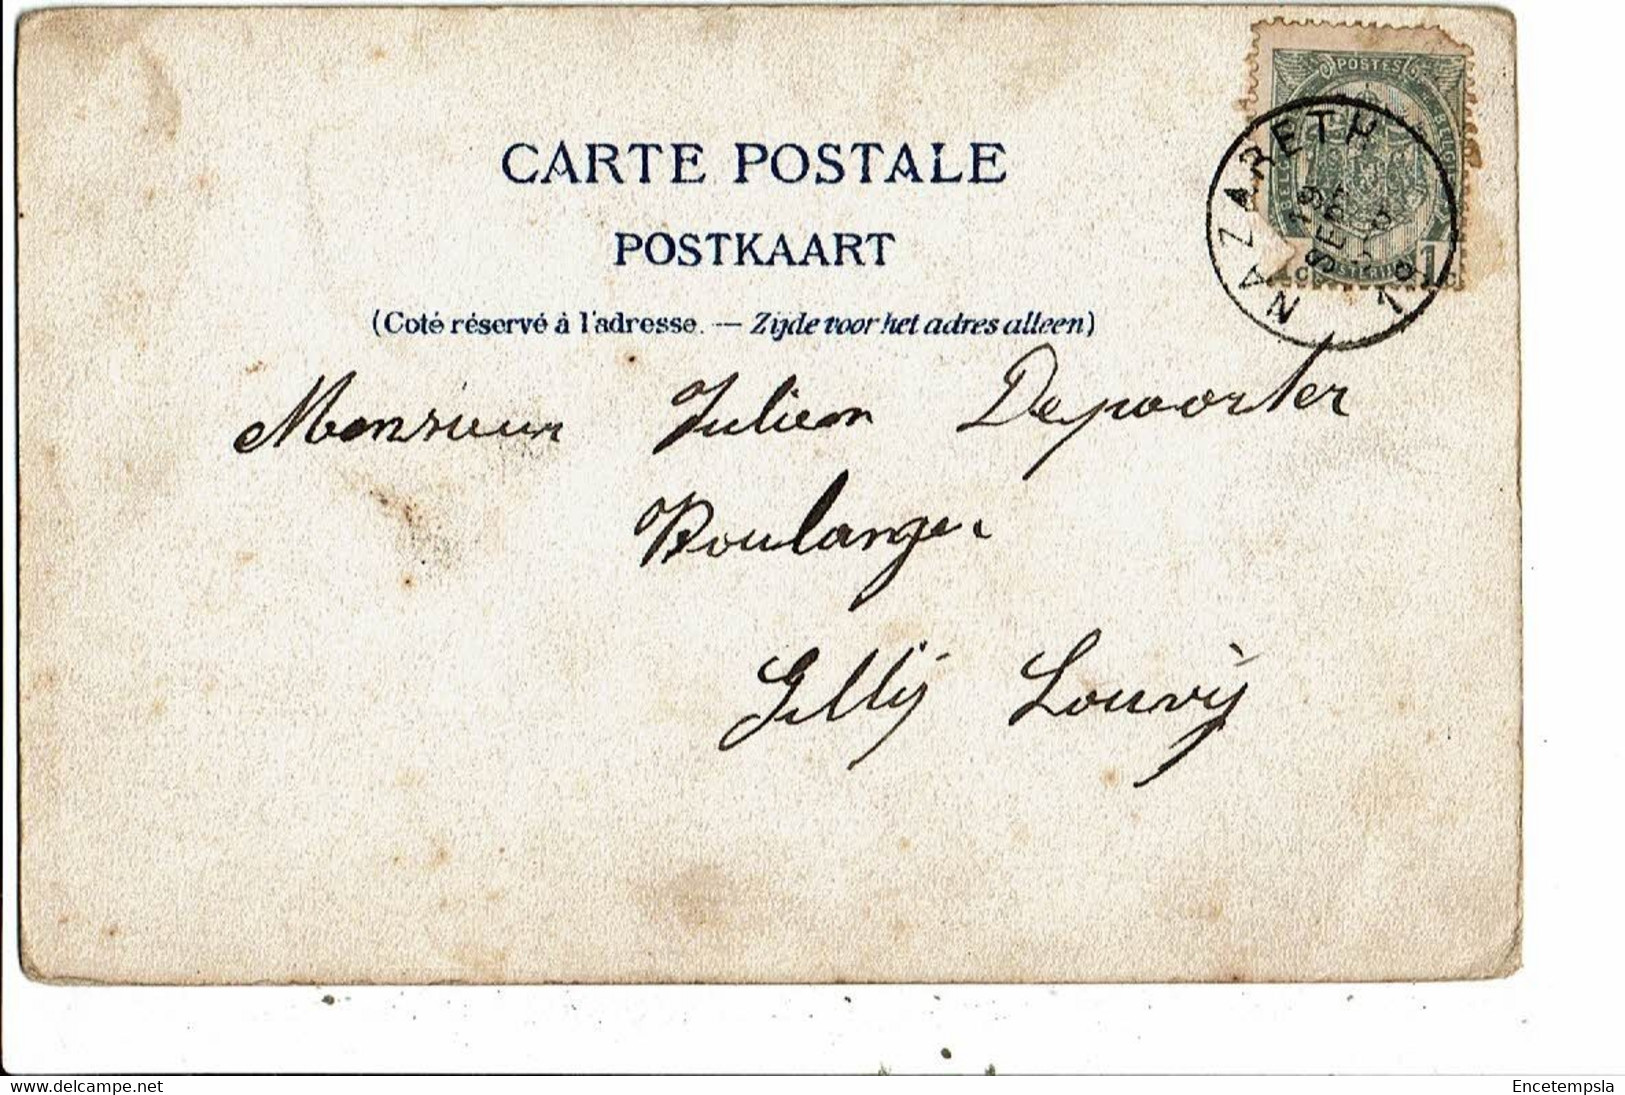 POSTES
NAZARETH
19
SEPT
CARTE POSTALE
POSTKAART
(Coté réservé à l'adresse. — Zijde voor het adres alleen)
Monsieur Julien Depoorter
Boulanger
Gillij Louvij
delcampe.net
Encetempsla